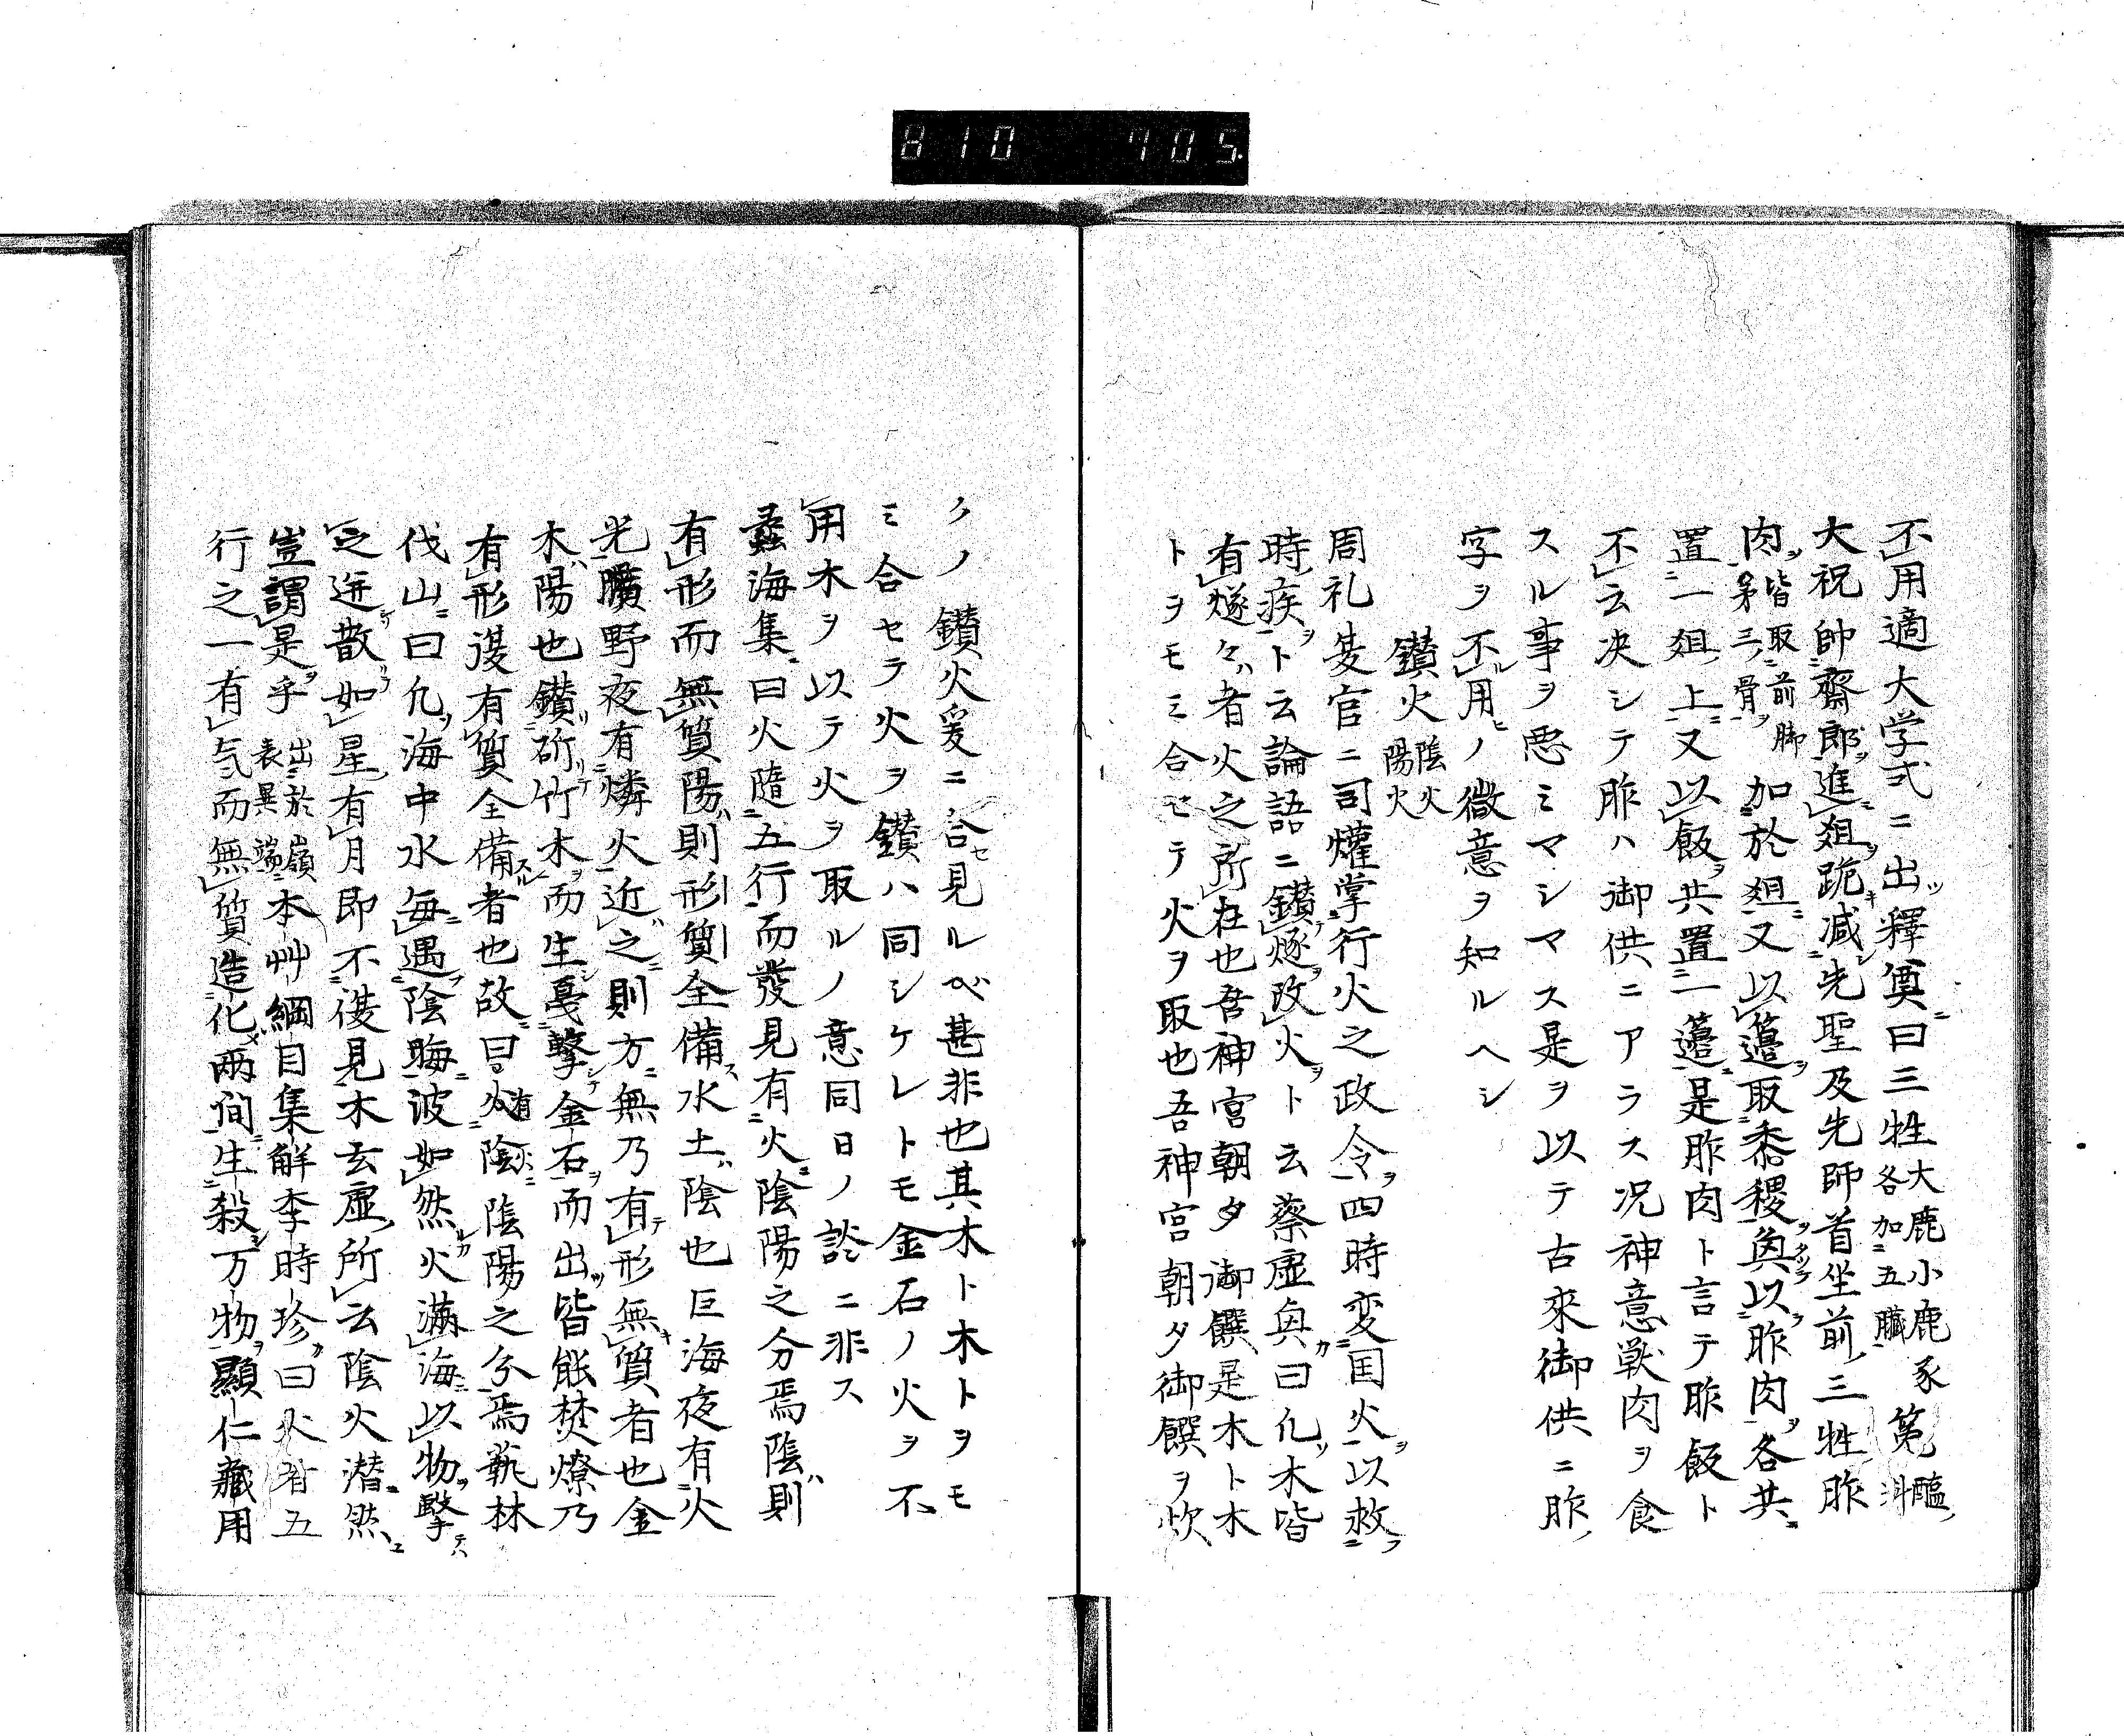 810 705.
不用適大学式ニ出釋奠曰三牲大鹿小鹿豕各加五臓第醢料
大祝帥齋郎進俎跪減先聖及先師首坐前三牲胙
肉皆取前脚第三骨加於俎又以籩取黍稷奠以胙肉各共
置一俎上又以飯共置一籩是胙肉ト言テ胙飯ト
不云决シテ胙ハ御供ニアラス况神意獣肉ヲ食
スル事ヲ悪ミマシマス是ヲ以テ古來御供ニ胙
字ヲ不用ノ微意ヲ知ルヘシ
鑚火陰火陽火
周礼夏官ニ司爟掌行火之政令四時変国火以救
時疾ト云論語ニ鑚燧改火ト云蔡虚曰凢木皆
有燧々者火之所在也吾神宮朝夕御饌是木ト木
トヲモミ合セテ火ヲ取也吾神宮朝夕御饌ヲ炊
クノ鑚火爰ニ合見ルベ甚非也其木ト木トヲモ
ミ合セラ火ヲ鑚ハ同シケレトモ金石ノ火ヲ不
用木ヲ以テ火ヲ取ルノ意同日ノ談ニ非ス
蠡海集曰火隨五行而發見有火陰陽之分焉陰則
有形而無質陽則形質全備水土陰也巨海夜有火
光曠野夜有燐火近之則方無乃有形無質者也金
木陽也鑚斫竹木而生戞擊金石而出皆能焚燎乃
有形復有質全備者也故曰火有陰火陰陽之分焉藝林
伐山曰凢海中水毎遇陰晦波如然火滿海以物擊
之迸散如星有月即不復見木玄虚所云陰火潜然
豈謂是乎出於嶺表異端本艸綱目集解李時珍曰火者五
行之一有气而無質造化兩间生殺万物顯仁藏用